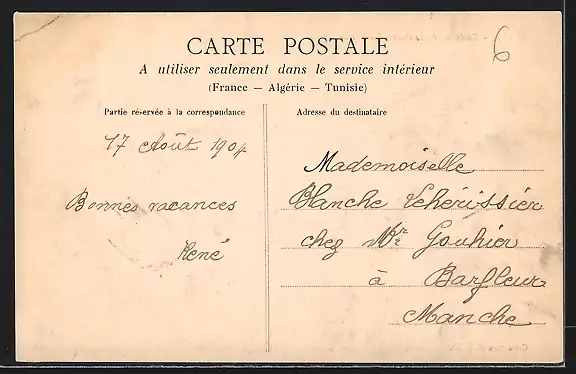 CARTE POSTALE
A utiliser seulement dans le service intérieur
(France — Algérie — Tunisie)
6
Partie réservée à la correspondance
17 Août 1904
Bonnes vacances
René
Adresse du destinataire
Mademoiselle
Blanche Lehérissier
chez Mr Gouhier
à Barfleur
Manche